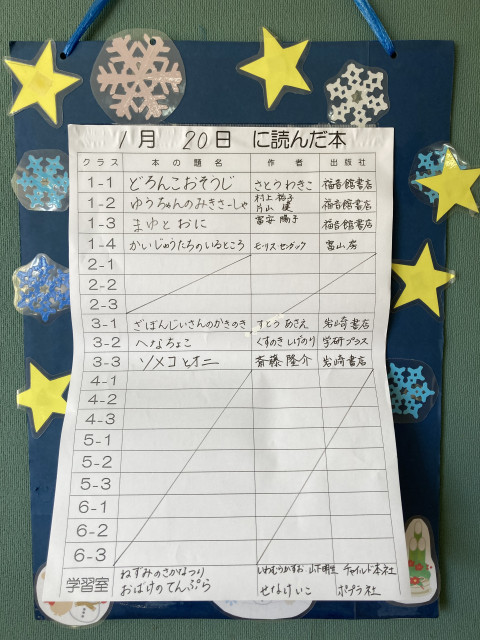 1月 20日 に読んだ本
クラス 本の題名 作者 出版社
1-1 どろんこおそうじ さとうわきこ 福音館書店
1-2 ゆうちゃんのみきさーしゃ 村上祐子 片山健 福音館書店
1-3 まゆとおに 富安陽子 福音館書店
1-4 かいじゅうたちのいるところ モーリス・センダック 冨山房
2-1
2-2
2-3
3-1 ざぼんじいさんのかきのき すとうあさえ 岩崎書店
3-2 へなちょこ くすのきしげのり 学研プラス
3-3 ソメコとオニ 斎藤隆介 岩崎書店
4-1
4-2
4-3
5-1
5-2
5-3
6-1
6-2
6-3
学習室 ねずみのさかなつり いわむらかずお 山下明生 チャイルド本社
おばけのてんぷら せなけいこ ポプラ社